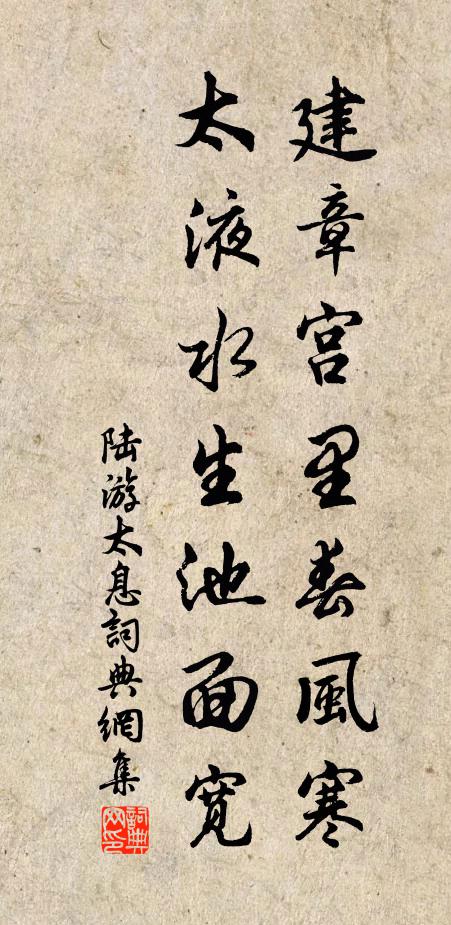 建章宫里春風寒
太液水生池面寬
陆游太息詞典網集
詞典網印